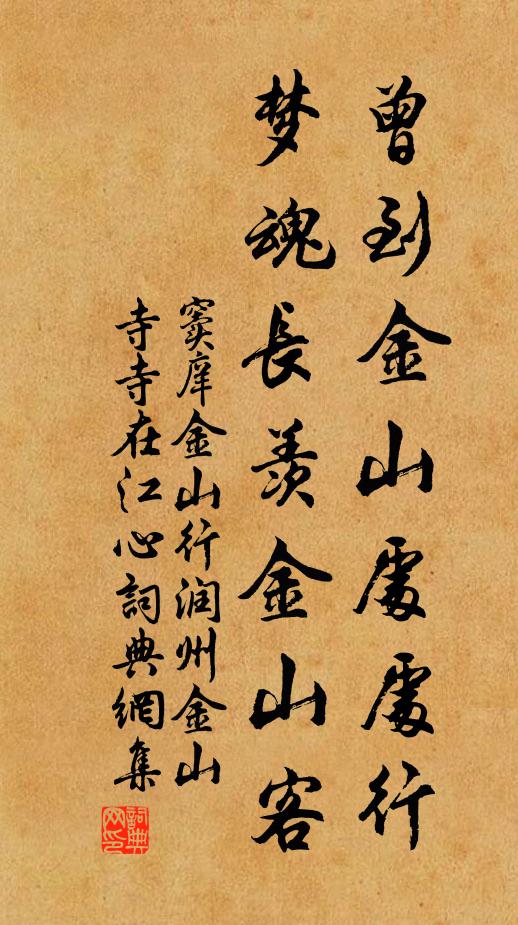 曾到金山處處行
梦魂長羨金山客
窦庠金山行润州金山
寺寺在江心詞典網集
詞典
网印